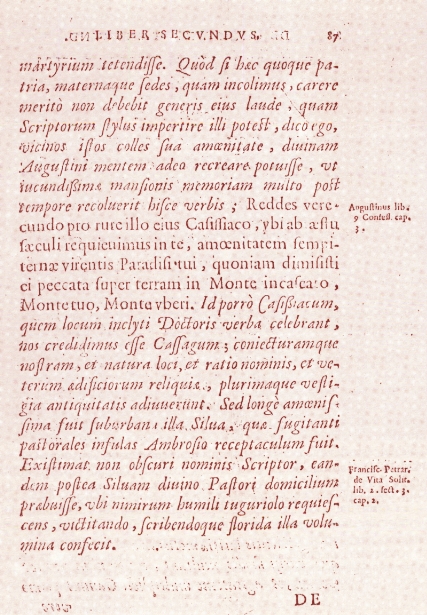 LIBER SECVNDVS. 87
martyrium tetendisse. Quòd si hæc quoque pa-
tria, maternaque sedes, quam incolimus, carere
meritò non debebit generis eius laude, quam
Scriptorum stylus impertire illi potest, dico ego,
vicinos istos colles sua amœnitate, diuinam
Augustini mentem adeo recreare potuisse, vt
iucundissimæ mansionis memoriam multo post
tempore recoluerit hisce verbis; Reddes vere-
cundo pro rure illo eius Casissiaco, ybi ab æstu
sæculi requieuimus in te, amœnitatem sempi-
ternæ virentis Paradisi tui, quoniam dimisisti
ei peccata super terram in Monte incaseato,
Monte tuo, Monte vberi. Id porrò Casissiacum,
quem locum inclyti Doctoris verba celebrant,
nos credidimus esse Cassagum; coniecturamque
nostram, et natura loci, et ratio nominis, et ve-
terum ædificiorum reliquiæ, plurimaque vesti-
gia antiquitatis adiuuerunt. Sed longè amœnis-
sima fuit suburbana illa Silua, quæ fugitanti
pastorales insulas Ambrosio receptaculum fuit.
Existimat non obscuri nominis Scriptor, ean-
dem postea Siluam diuino Pastori domicilium
præbuisse, vbi nimirum humili tuguriolo requies-
cens, victitando, scribendoque florida illa volu-
mina confecit.
Augustinus lib.
9 Confess. cap.
3.
Francisc. Petrar.
de Vita Solit.
lib. 2. sect. 3.
cap. 2.
DE